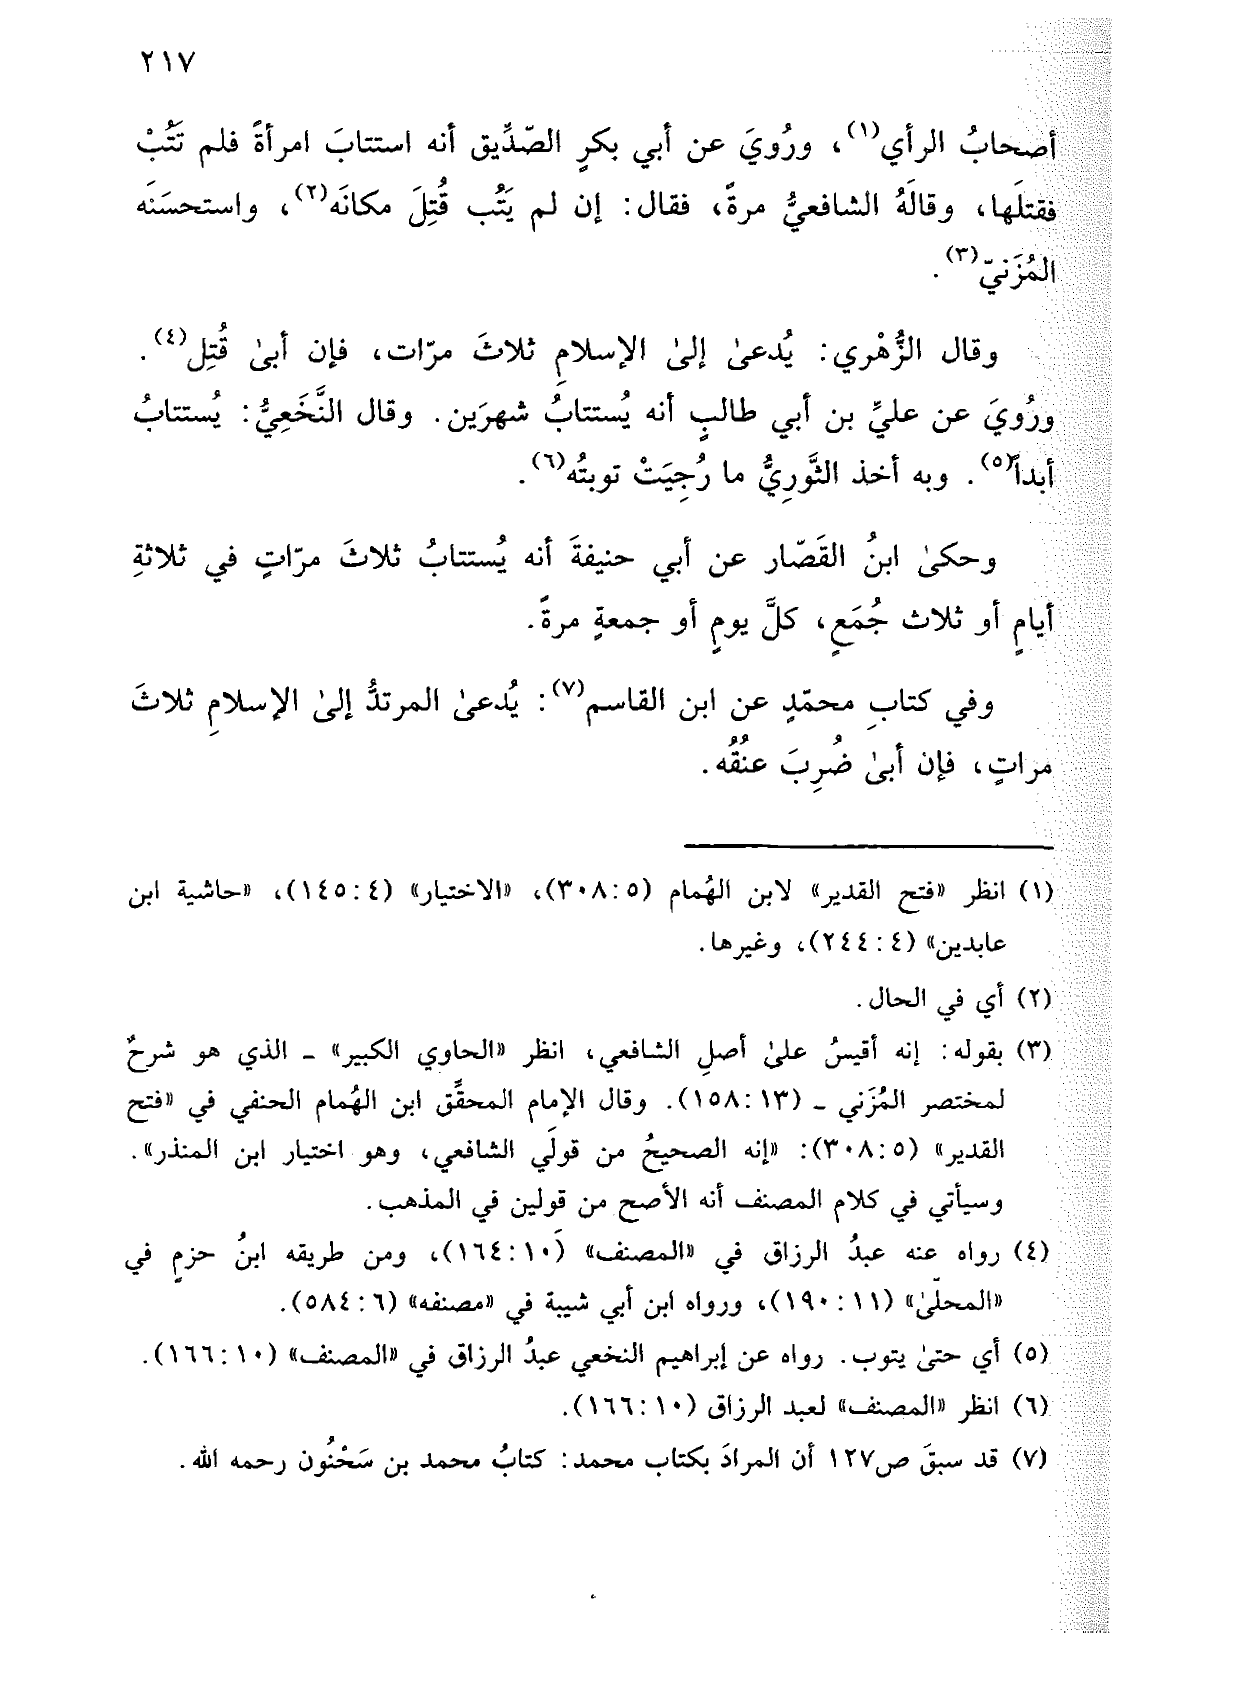 ٢١٧
أصحابُ الرأي(١)، ورُويَ عن أبي بكرٍ الصّدِّيق أنه استتابَ امرأةً فلم تَتُبْ
فقتلَها، وقالَهُ الشافعيُّ مرةً، فقال: إن لم يَتُب قُتِلَ مكانَه(٢)، واستحسَنَه
المُزَنيّ(٣).
وقال الزُّهْري: يُدعىٰ إلىٰ الإسلامِ ثلاثَ مرّات، فإن أبىٰ قُتِل(٤).
ورُويَ عن عليِّ بن أبي طالبٍ أنه يُستتابُ شهرَين. وقال النَّخَعِيُّ: يُستتابُ
أبداً(٥). وبه أخذ الثَّورِيُّ ما رُجِيَتْ توبتُه(٦).
وحكىٰ ابنُ القَصّار عن أبي حنيفةَ أنه يُستتابُ ثلاثَ مرّاتٍ في ثلاثةِ
أيامٍ أو ثلاث جُمَعٍ، كلَّ يومٍ أو جمعةٍ مرةً.
وفي كتابِ محمّدٍ عن ابن القاسم(٧): يُدعىٰ المرتدُّ إلىٰ الإسلامِ ثلاثَ
مراتٍ، فإن أبىٰ ضُرِبَ عنُقُه.
(١) انظر «فتح القدير» لابن الهُمام (٥:٣٠٨)، «الاختيار» (٤:١٤٥)، «حاشية ابن
عابدين» (٤:٢٤٤)، وغيرها.
(٢) أي في الحال.
(٣) بقوله: إنه أقيسُ علىٰ أصلِ الشافعي، انظر «الحاوي الكبير» ـ الذي هو شرحٌ
لمختصر المُزَني ـ (١٣:١٥٨). وقال الإمام المحقَّق ابن الهُمام الحنفي في «فتح
القدير» (٥:٣٠٨): «إنه الصحيحُ من قولَي الشافعي، وهو اختيار ابن المنذر».
وسيأتي في كلام المصنف أنه الأصح من قولين في المذهب.
(٤) رواه عنه عبدُ الرزاق في «المصنف» (١٠:١٦٤)، ومن طريقه ابنُ حزمٍ في
«المحلّىٰ» (١١:١٩٠)، ورواه ابن أبي شيبة في «مصنفه» (٦:٥٨٤).
(٥) أي حتىٰ يتوب. رواه عن إبراهيم النخعي عبدُ الرزاق في «المصنف» (١٠:١٦٦).
(٦) انظر «المصنف» لعبد الرزاق (١٠:١٦٦).
(٧) قد سبقَ ص١٢٧ أن المرادَ بكتاب محمد: كتابُ محمد بن سَحْنُون رحمه الله.